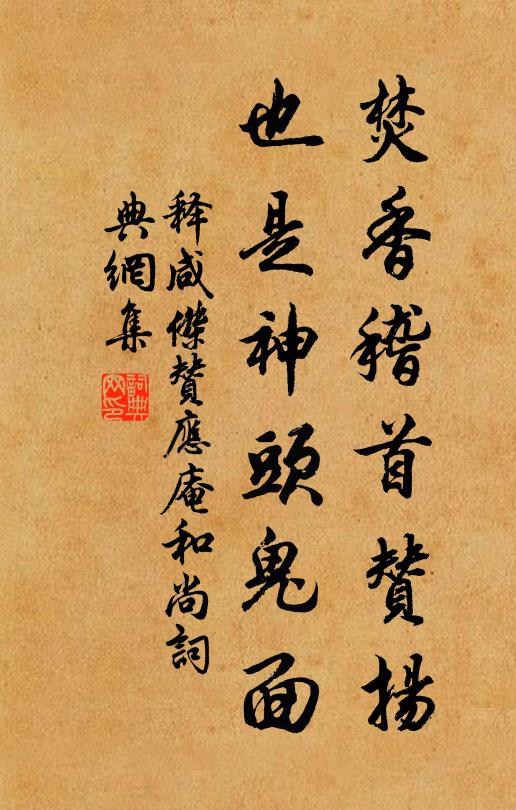 焚香稽首赞揚
也是神頭鬼面
释咸傑赞應庵和尚詞
典網集
詞典
网印